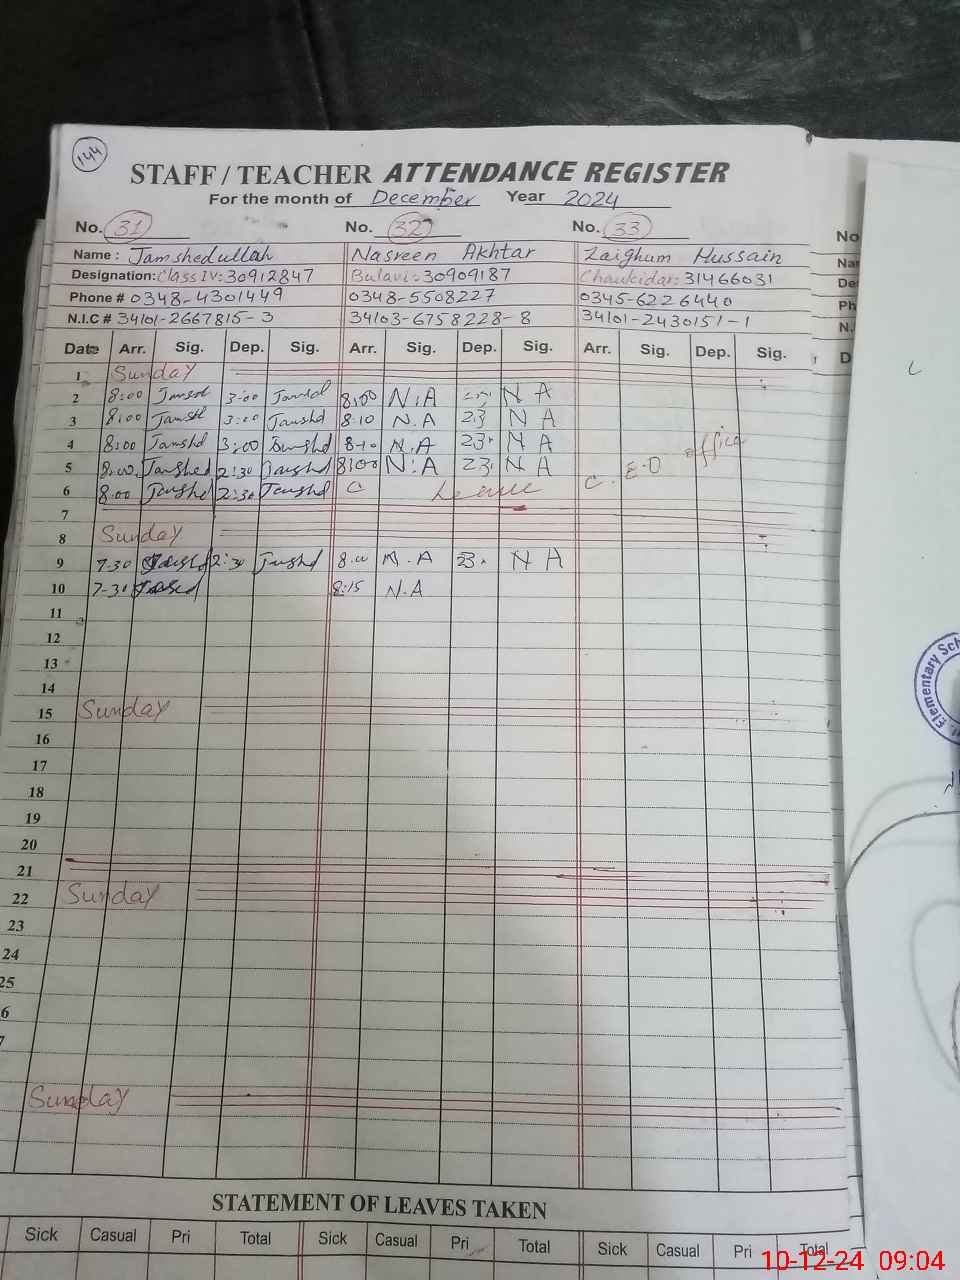 144
STAFF / TEACHER ATTENDANCE REGISTER
For the month of December Year 2024
No. 31 No. 32 No. 33
Name : Jamshedullah Nasreen Akhtar Zaighum Hussain
Designation: Class IV: 30912847 Bulavi: 30909187 Chaukidar: 31466031
Phone # 0348-4301449 0348-5508227 0345-6226440
N.I.C # 34101-2667815-3 34103-6758228-8 34101-2430151-1
Date Arr. Sig. Dep. Sig. Arr. Sig. Dep. Sig. Arr. Sig. Dep. Sig.
1 Sunday
2 8:00 3:00 8:00 N.A N A
3 8:00 3:00 8:10 N.A 23 N A
4 8:00 Jamshd 3:00 8:10 N.A 23. N A
5 8:00 Jamshed 2:30 Jamshd 8:00 N.A 23. N A C.E.O office
6 8.00 Jamshd 2:30 Jamshd C Leave
7
8 Sunday
9 7-30 2:30 8.00 N.A 23. N A
10 7-30 8:15 N.A
11
12
13
14
15 Sunday
16
17
18
19
20
21
22 Sunday
23
24
25
6
7
Sunday
STATEMENT OF LEAVES TAKEN
Sick Casual Pri Total Sick Casual Pri Total Sick Casual Pri Total
No
Nar
De
Ph
N.
D
Elementary Sch
10-12-24 09:04